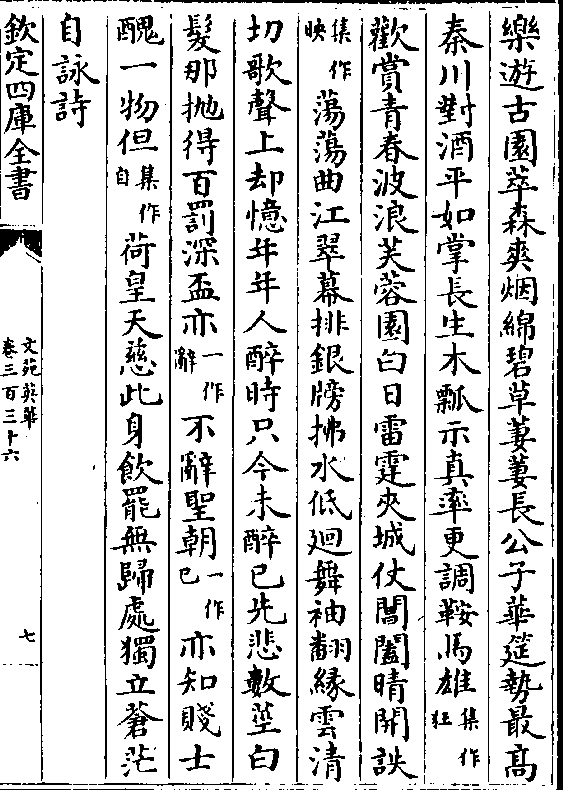 樂遊古園萃森爽烟綿碧草萋萋長公子華筵勢最高
秦川對酒平如掌長生木瓢示真率更調鞍馬雄集作狂
歡賞青春波浪芙蓉園白日雷霆夾城仗閶闔晴開詄
集作映蕩蕩曲江翠幕排銀牓拂水低廻舞袖翻緣雲清
切歌聲上却憶年年人醉時只今未醉已先悲數莖白
髮那抛得百罰深盃亦一作辭不辭聖朝一作已亦知賤士
醜一物但集作自荷皇天慈此身飲罷無歸處獨立蒼茫
自詠詩
欽定四庫全書
文苑英華
卷三百三十六
七